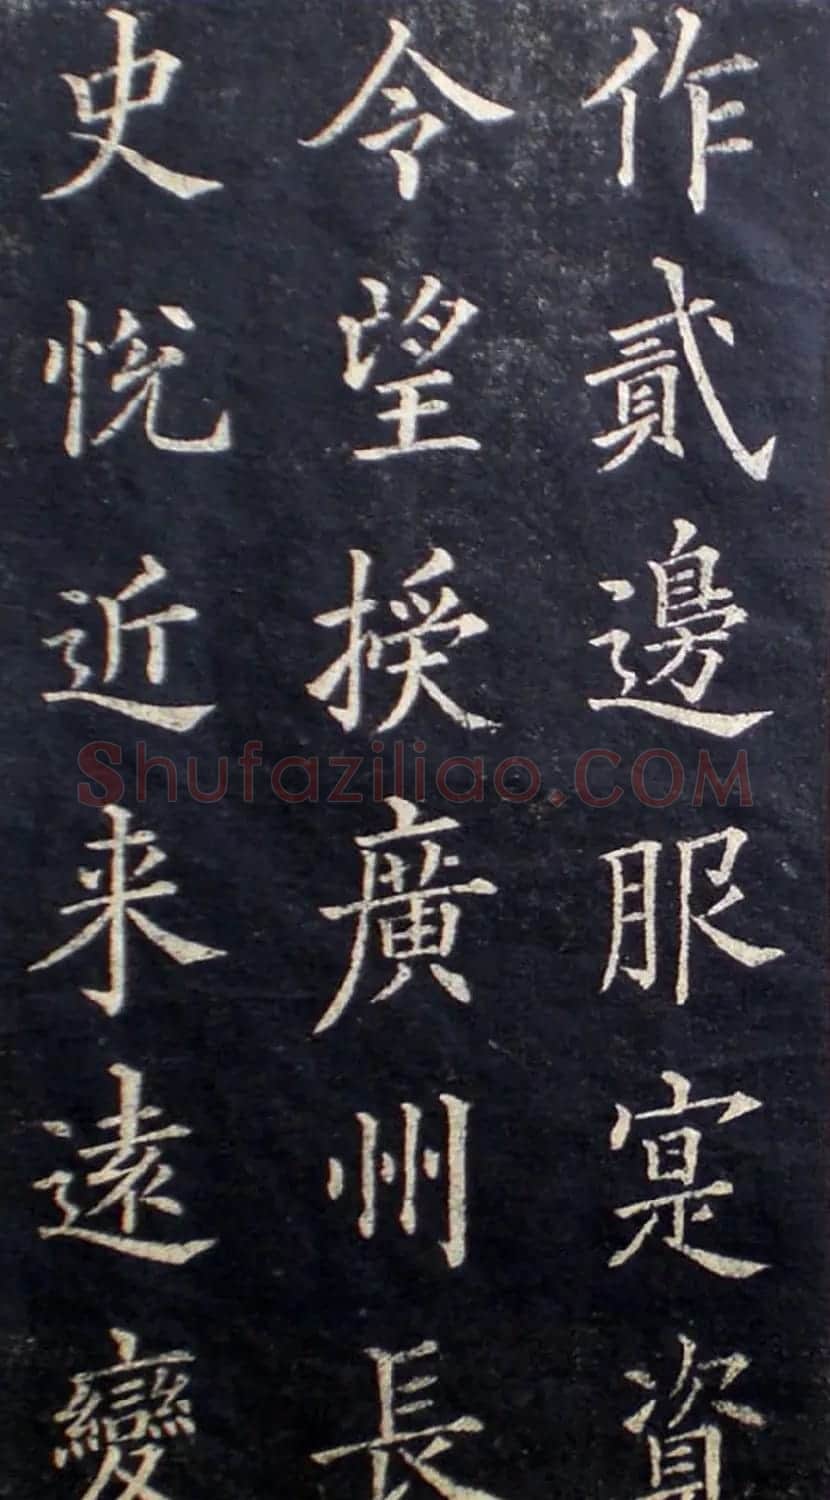 作貳邊服寔資
令望授廣州長
史悅近来遠變
Shufaziliao.COM